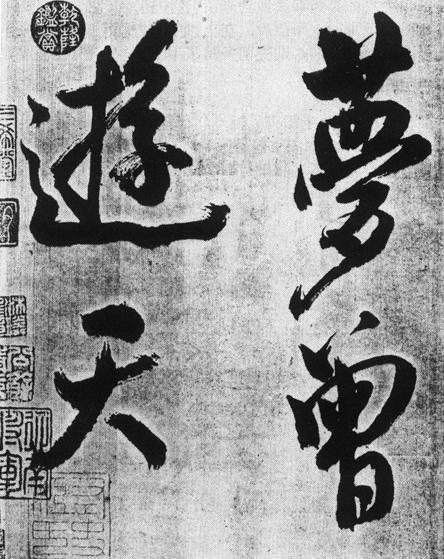 夢曾
遊天
乾隆鑑賞